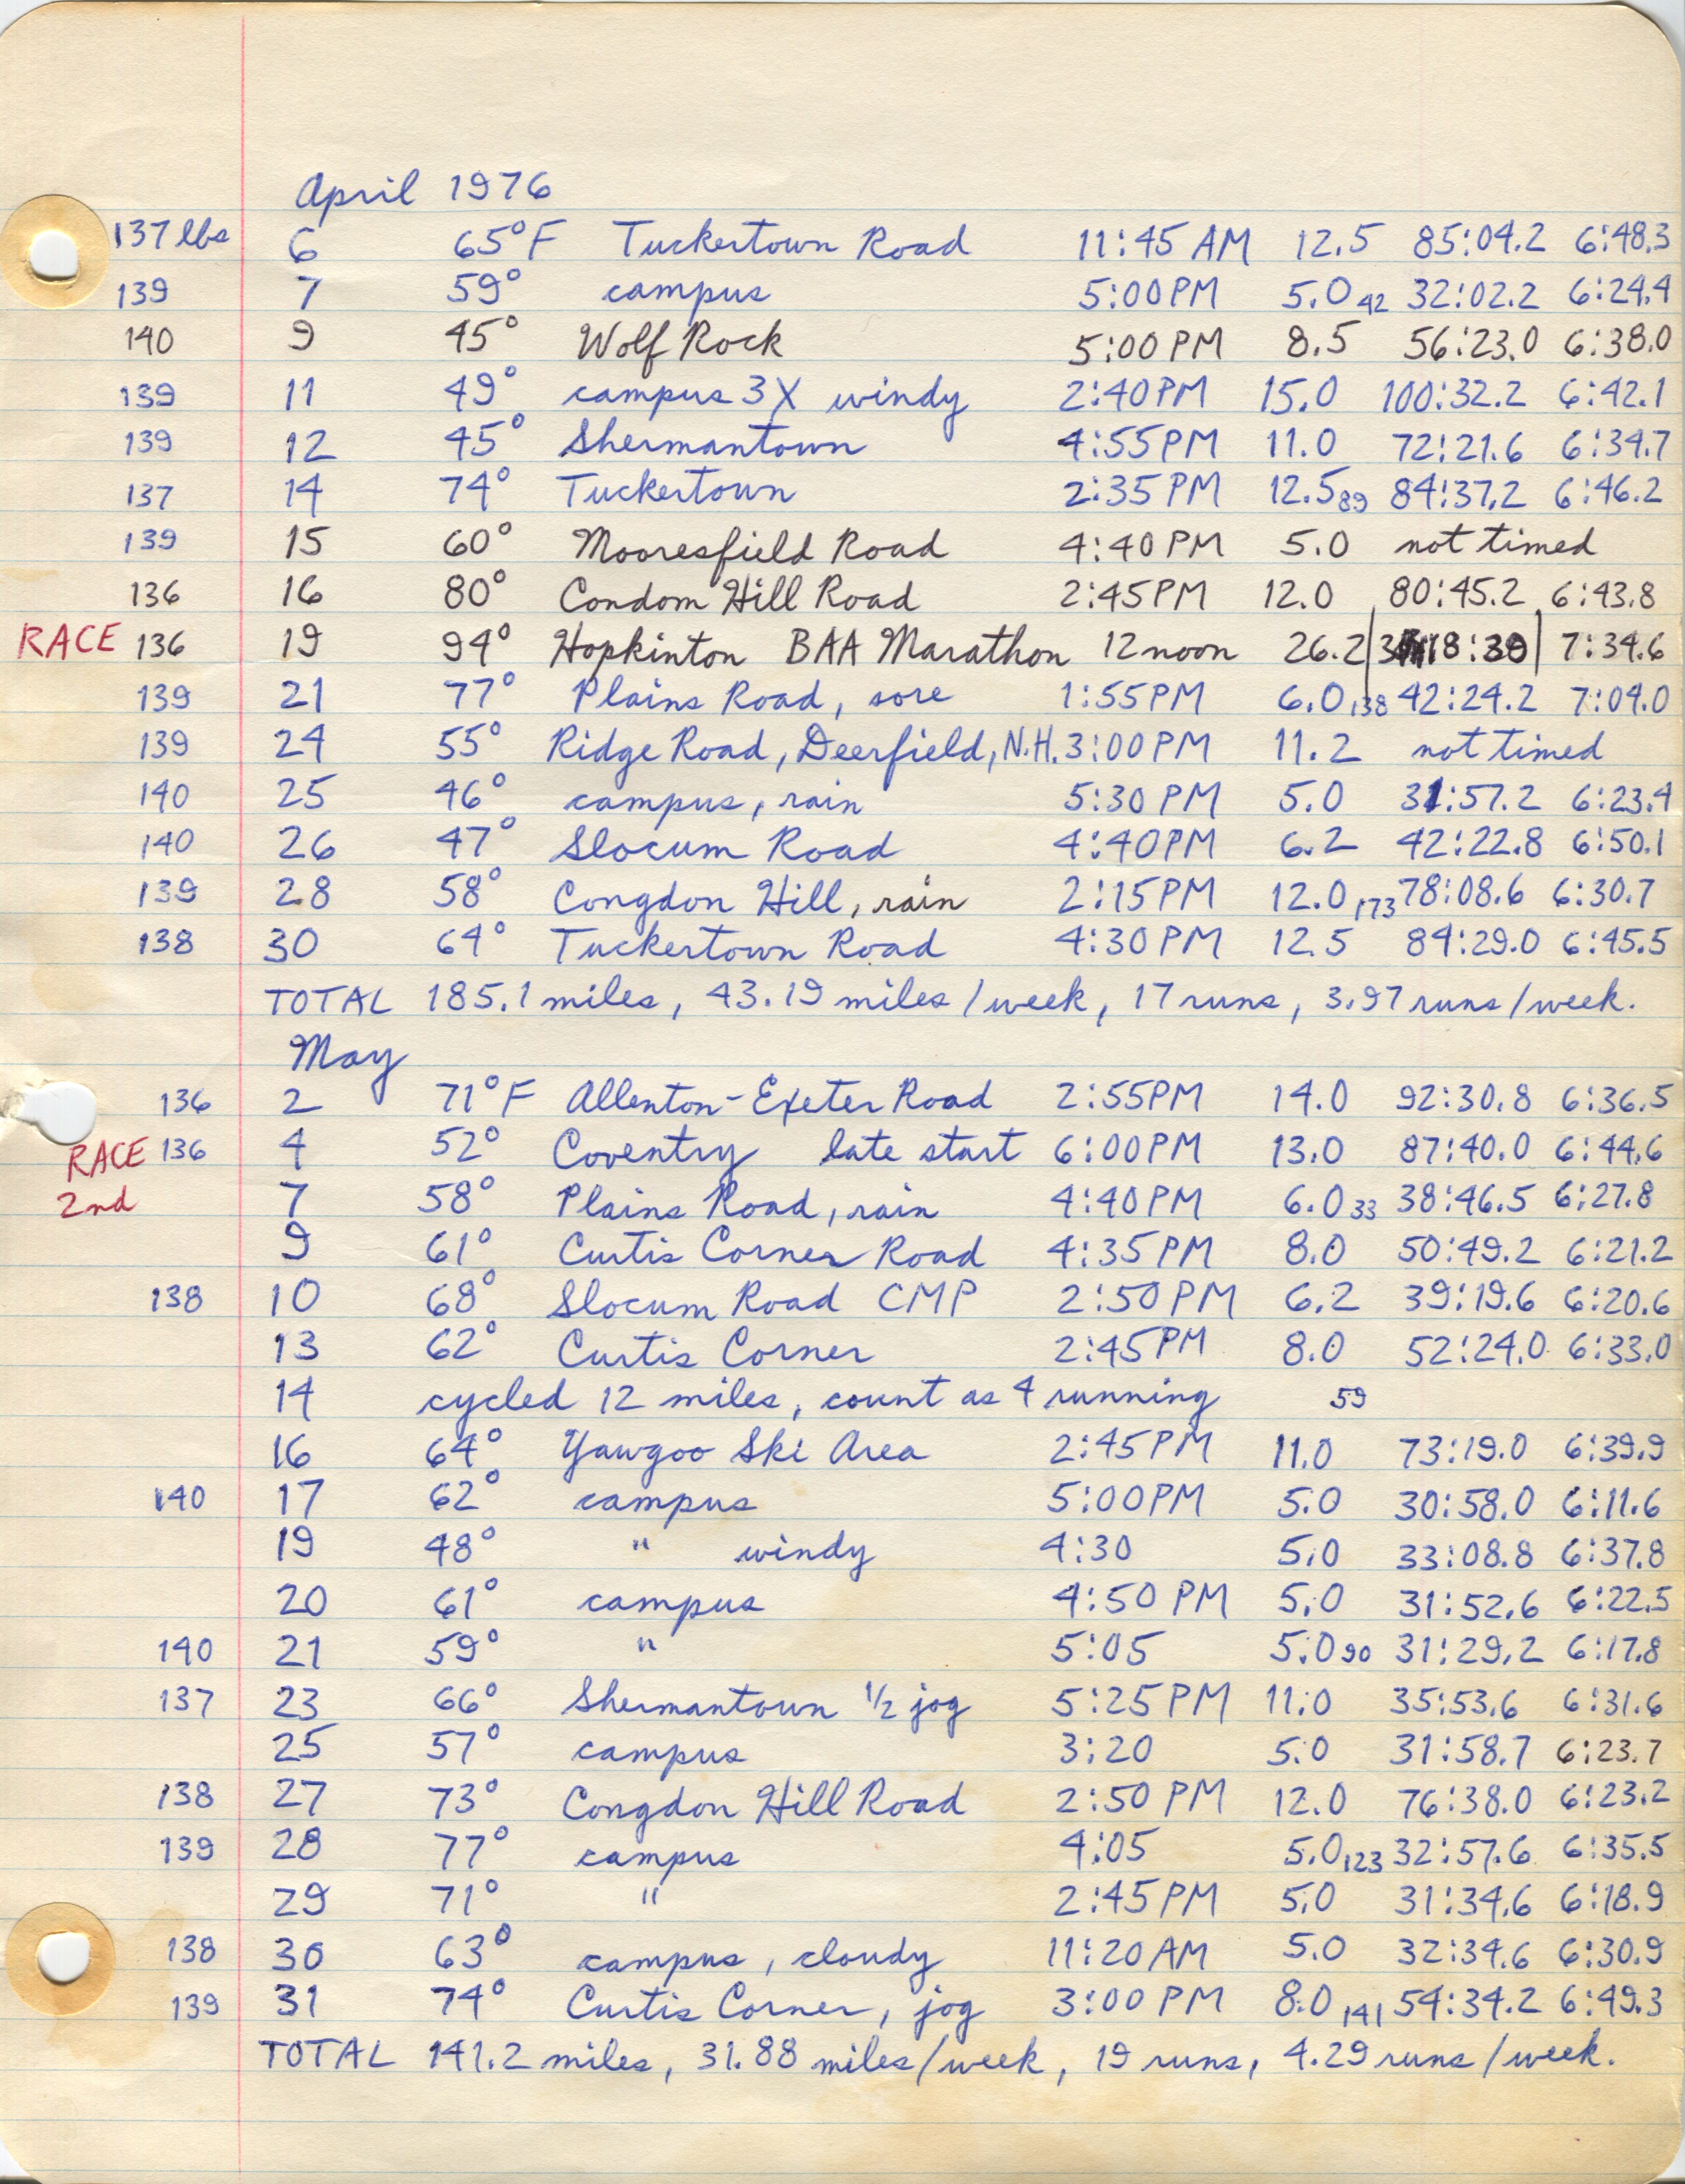 April 1976
137 lbs 6 65°F Tuckertown Road 11:45 AM 12.5 85:04.2 6:48.3
139 7 59° campus 5:00 PM 5.0 42 32:02.2 6:24.4
140 9 45° Wolf Rock 5:00 PM 8.5 56:23.0 6:38.0
139 11 49° campus 3X windy 2:40 PM 15.0 100:32.2 6:42.1
139 12 45° Shermantown 4:55 PM 11.0 72:21.6 6:34.7
137 14 74° Tuckertown 2:35 PM 12.5 89 84:37.2 6:46.2
139 15 60° Mooresfield Road 4:40 PM 5.0 not timed
136 16 80° Condom Hill Road 2:45 PM 12.0 80:45.2 6:43.8
RACE 136 19 94° Hopkinton BAA Marathon 12 noon 26.2 3:18:30 7:34.6
139 21 77° Plains Road, sore 1:55 PM 6.0 138 42:24.2 7:04.0
139 24 55° Ridge Road, Deerfield, N.H. 3:00 PM 11.2 not timed
140 25 46° campus, rain 5:30 PM 5.0 31:57.2 6:23.4
140 26 47° Slocum Road 4:40 PM 6.2 42:22.8 6:50.1
139 28 58° Congdon Hill, rain 2:15 PM 12.0 173 78:08.6 6:30.7
138 30 64° Tuckertown Road 4:30 PM 12.5 84:29.0 6:45.5
TOTAL 185.1 miles, 43.19 miles/week, 17 runs, 3.97 runs/week.
May
136 2 71°F Allenton-Exeter Road 2:55 PM 14.0 92:30.8 6:36.5
RACE 136 4 52° Coventry late start 6:00 PM 13.0 87:40.0 6:44.6
2nd 7 58° Plains Road, rain 4:40 PM 6.0 33 38:46.5 6:27.8
9 61° Curtis Corner Road 4:35 PM 8.0 50:49.2 6:21.2
138 10 68° Slocum Road CMP 2:50 PM 6.2 39:19.6 6:20.6
13 62° Curtis Corner 2:45 PM 8.0 52:24.0 6:33.0
14 cycled 12 miles, count as 4 running 59
16 64° Yawgoo Ski Area 2:45 PM 11.0 73:19.0 6:39.9
140 17 62° campus 5:00 PM 5.0 30:58.0 6:11.6
19 48° " windy 4:30 5.0 33:08.8 6:37.8
20 61° campus 4:50 PM 5.0 31:52.6 6:22.5
140 21 59° " 5:05 5.0 90 31:29.2 6:17.8
137 23 66° Shermantown 1/2 jog 5:25 PM 11.0 35:53.6 6:31.6
25 57° campus 3:20 5.0 31:58.7 6:23.7
138 27 73° Congdon Hill Road 2:50 PM 12.0 76:38.0 6:23.2
139 28 77° campus 4:05 5.0 123 32:57.6 6:35.5
29 71° " 2:45 PM 5.0 31:34.6 6:18.9
138 30 63° campus, cloudy 11:20 AM 5.0 32:34.6 6:30.9
139 31 74° Curtis Corner, jog 3:00 PM 8.0 141 54:34.2 6:49.3
TOTAL 141.2 miles, 31.88 miles/week, 19 runs, 4.29 runs/week.